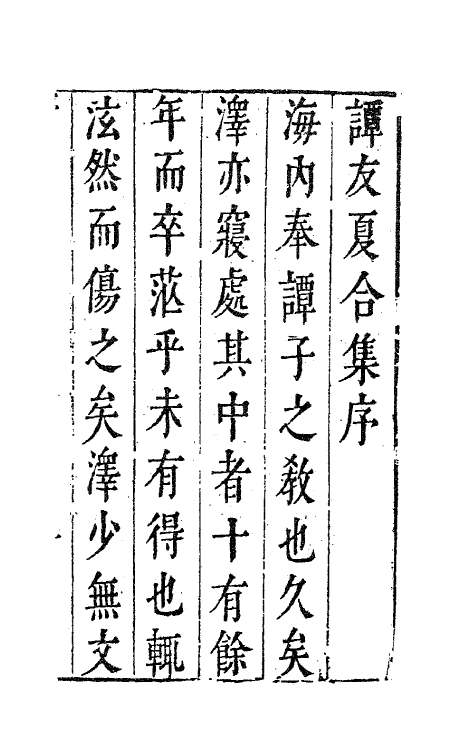 譚友夏合集序
海內奉譚子之教也久矣
澤亦寢處其中者十有餘
年而卒茫乎未有得也輒
泫然而傷之矣澤少無文